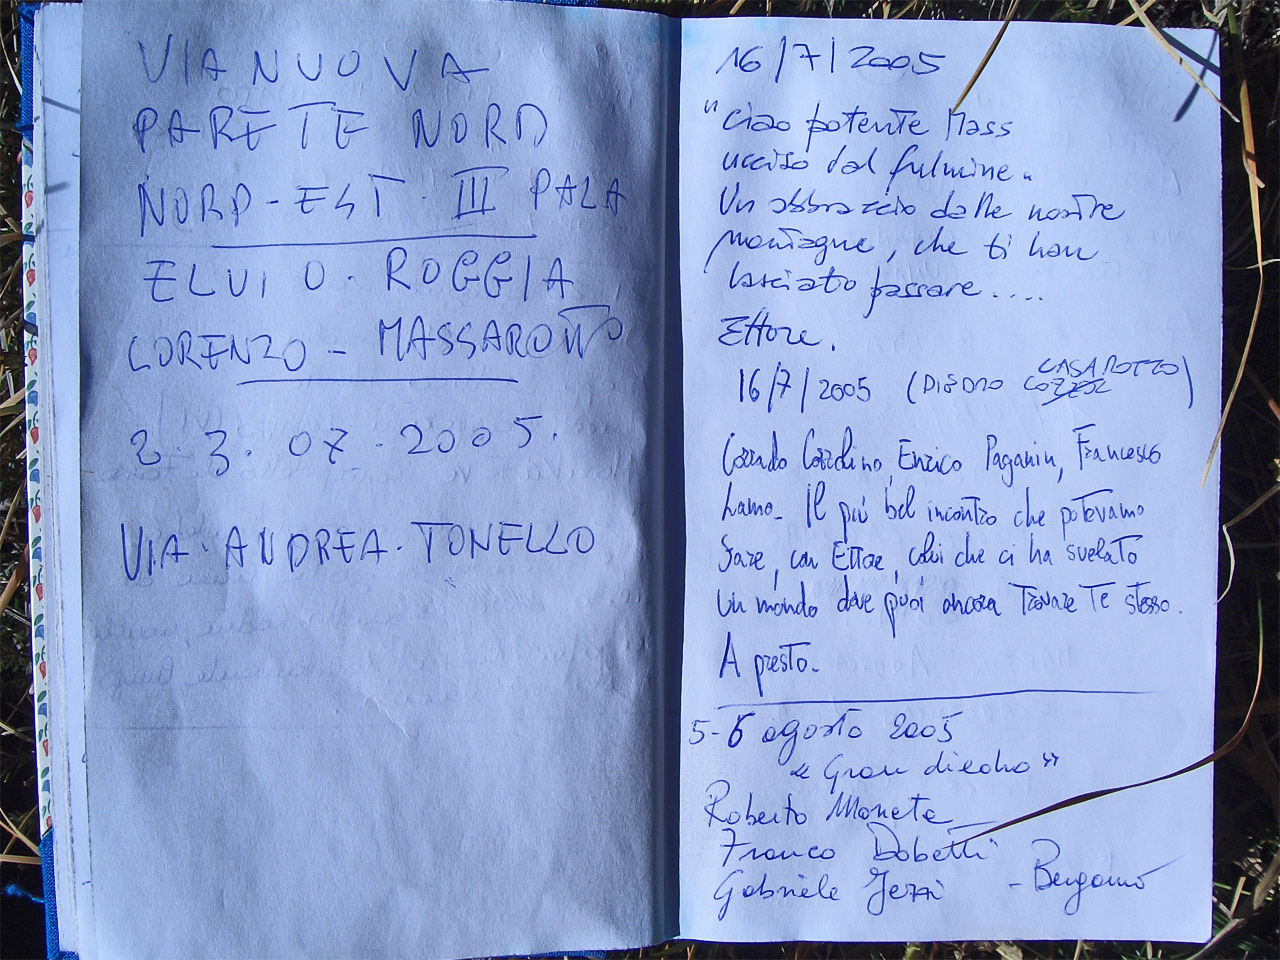 VIA NUOVA
PARETE NORD
NORD-EST. III PALA
ELVIO. ROGGIA
LORENZO - MASSAROTTO
2.3.07-2005.
VIA. ANDREA. TONELLO
16/7/2005
"Ciao potente Mass
ucciso dal fulmine.
Un abbraccio dalle nostre
montagne, che ti han
lasciato passare....
Ettore.
16/7/2005 (DIEDRO CASAROTTO)
Corrado Cozzolino, Enrico Paganin, Francesco
Lamo- Il più bel incontro che potevamo
fare, con Ettore, colui che ci ha svelato
un mondo dove puoi ancora trovare te stesso.
A presto-
5-6 agosto 2005
"Gran diedro"
Roberto Moneta
Franco Dobetti
Gabriele - Bergamo